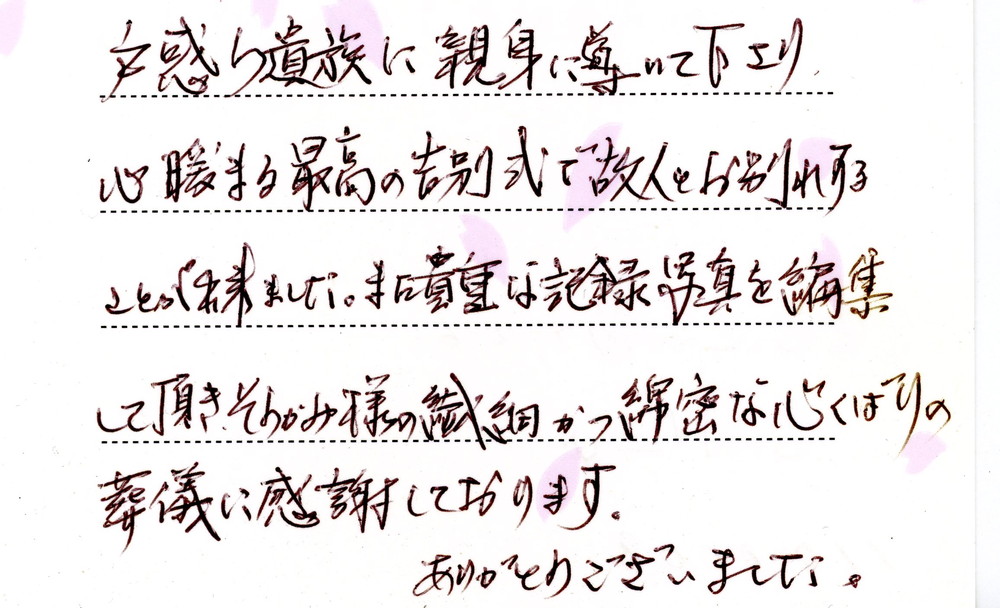 惑う遺族に親身に導いて下さり
心暖まる最高の告別式で故人とお別れする
ことが出来ました。また貴重な記録写真を編集
して頂き、そのかみ様の繊細かつ綿密な心くばりの
葬儀に感謝しております。
ありがとうございました。